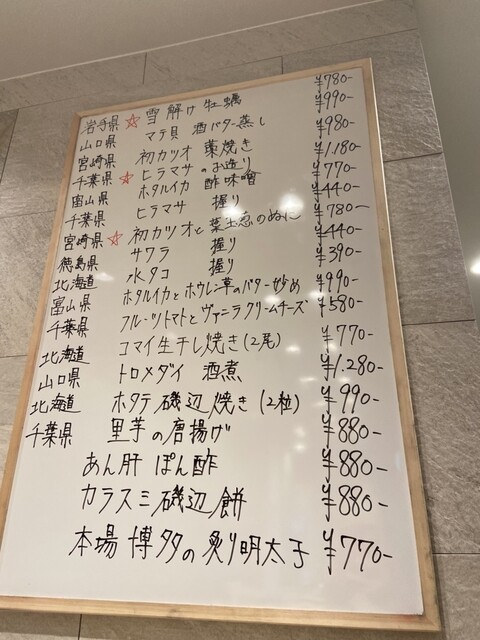 岩手県 ☆ 雪解け牡蠣 ¥780-
山口県 マテ貝 酒バター蒸し ¥990-
宮崎県 初カツオ 藁焼き ¥980-
千葉県 ☆ ヒラマサのお造り ¥1.180-
富山県 ホタルイカ 酢味噌 ¥770-
千葉県 ヒラマサ 握り ¥440-
宮崎県 ☆ 初カツオと葉玉葱のぬた ¥780-
徳島県 サワラ 握り ¥440-
北海道 水タコ 握り ¥390-
富山県 ホタルイカとホウレン草のバター炒め ¥990-
千葉県 フルーツトマトとヴァニラクリームチーズ ¥580-
北海道 コマイ生干し焼き(2尾) ¥770-
山口県 トロメダイ 酒煮 ¥1.280-
北海道 ホタテ磯辺焼き(2粒) ¥990-
千葉県 里芋の唐揚げ ¥880-
あん肝 ぽん酢 ¥880-
カラスミ磯辺餅 ¥880-
本場 博多の炙り明太子 ¥770-